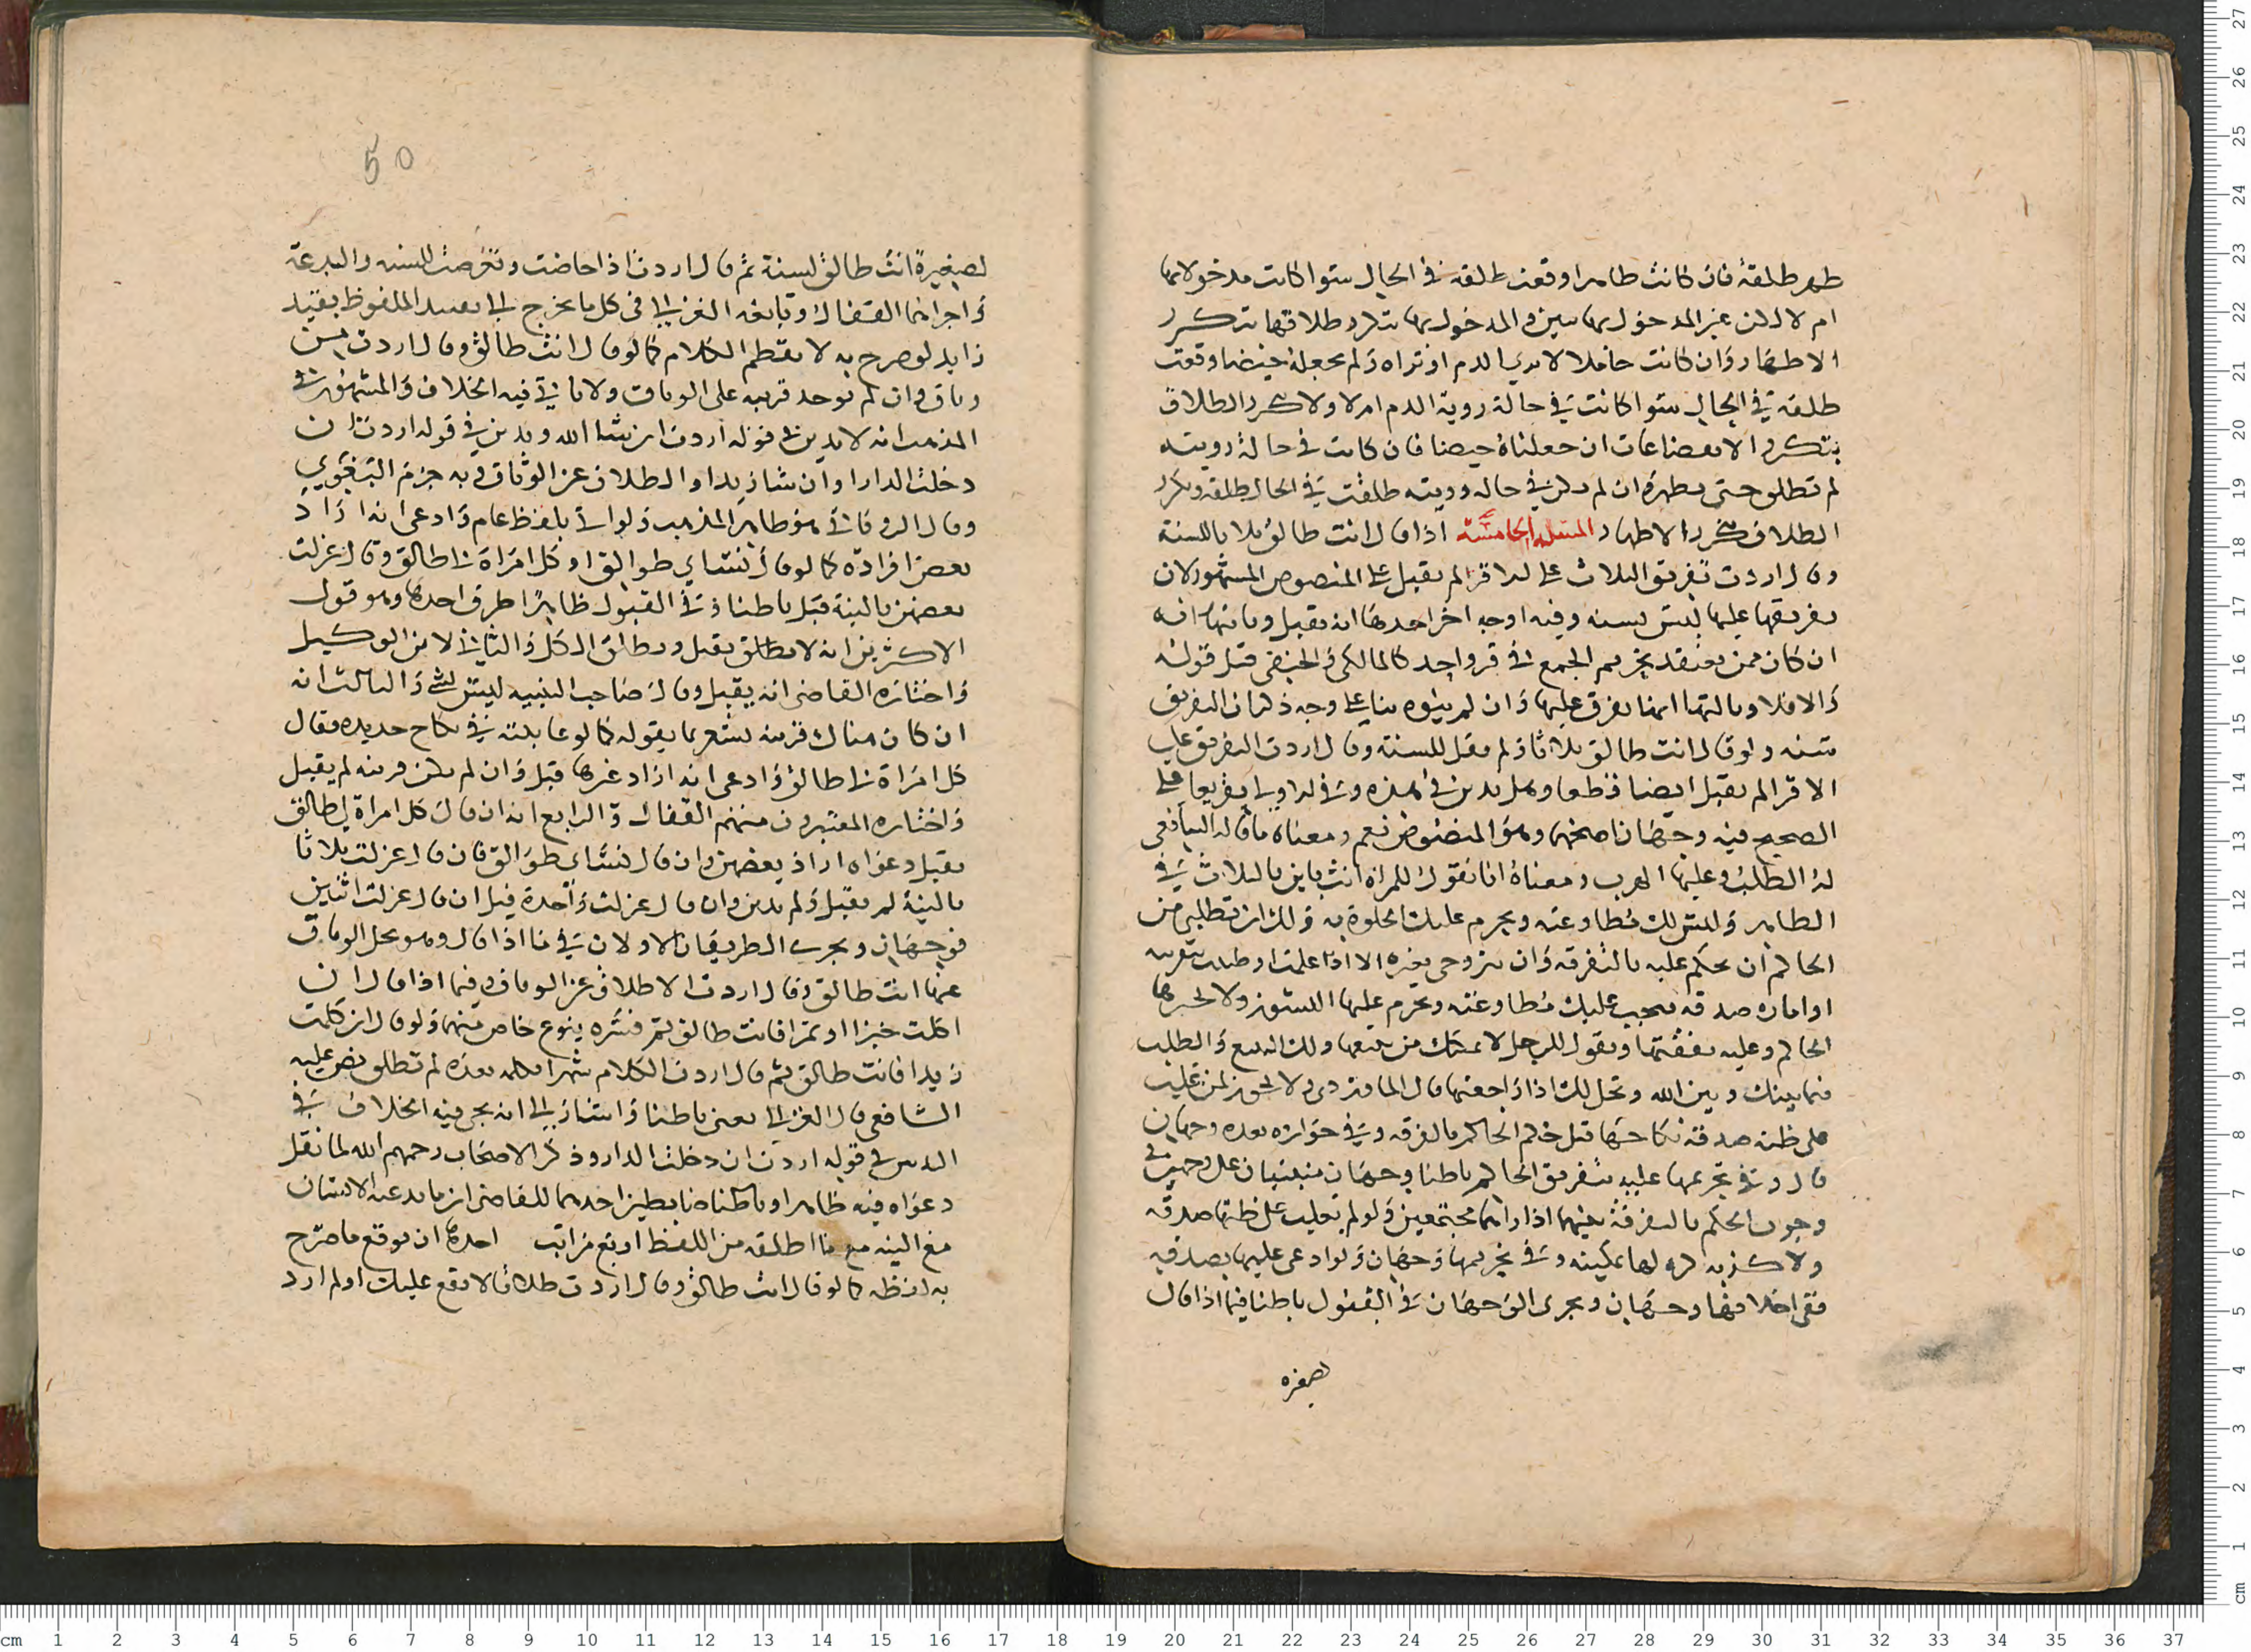 طهر طلقة فان كانت طاهرا وقعت طلقة في الحال سوا كانت مدخولا بها
ام لا لكن غير المدخول بها تبين والمدخول بها تكرر طلاقها بتكرر
الاطهار وان كانت حاملا لا ترى الدم او تراه ولم نجعله حيضا وقعت
طلقة في الحال سوا كانت في حالة روية الدم ام لا ولا يتكرر الطلاق
بتكرر الانقضاعات ان جعلناه حيضا فان كانت في حالة رويته
لم تطلق حتى تطهر وان لم تكن في حالة رويته طلقت في الحال طلقة وتكرر
الطلاق بتكرر الاطهار المسله الخامسة اذا قال انت طالق ثلاثا للسنة
وقال اردت تفريق الثلاث على الاقرا لم يقبل على المنصوص المشهور لان
تفريقها عليها ليس بسنة وفيه اوجه اخر احدها انه يقبل وثانيها انه
ان كان ممن يعتقد تحريم الجمع في قر واحد كالمالكي والحنفي قبل قوله
والا فلا وثالثها انها تفرق عليها وان لم ينوه بنا على وجه ذكر ان التفريق
سنة ولو قال انت طالق ثلاثا ولم يقل للسنة وقال اردت التفريق على
الاقرا لم يقبل ايضا قطعا وهل يدين في هذه وفي الاولى تفريعا على
الصحيح فيه وجهان اصحهما وهو المنصوص نعم ومعناه ما قاله الشافعي
له الطلب وعليها الهرب ومعناه انا نقول للمراة انت باين بالثلاث في
الظاهر وليس لك مطاوعته ويحرم عليك الخلوة به ولك ان تطلبي من
الحاكم ان يحكم عليه بالتفرقة وان تتزوجي بغيره الا اذا علمت او ظننت بقرينة
او امارة صدقه فيجب عليك مطاوعته ويحرم عليها النشوز ولا يجبرها
الحاكم وعليه نفقتها ونقول للرجل لا نمكنك من تتبعها ولك التتبع والطلب
فيما بينك وبين الله وتحل لك اذا راجعتها قال الماوردي ولا يجوز لمن غلب
على ظنه صدقه نكاحها قبل حكم الحاكم بالفرقة وفي جوازه بعده وجهان
قال وفي تحريمها عليه بتفريق الحاكم باطنا وجهان مبنيان على وجهين في
وجوب الحكم بالتفرقة بينهما اذا راهما مجتمعين ولو لم يغلب على ظنها صدقه
ولا كذبه كره لها تمكينه وفي تحريمها وجهان ولو ادعى عليها تصديقه
ففي احلافها وجهان ويجري الوجهان في القبول باطنا فيما اذا قال
لصغيرة
50
لصغيرة انت طالق لسنة ثم قال اردت اذا حاضت وتعرضت للسنة والبدعة
واجراهما القفال وتابعه الغزالي في كل ما يخرج الى تقييد الملفوظ بقيد
زايد لو صرح به لا نقطم الكلام كما لو قال انت طالق وقال اردت من
وثاق وان لم توجد قرينة على الوثاق ولا ياتي فيه الخلاف والمشهور في
المذهب انه لا يدين في قوله اردت ان شا الله ويدين في قوله اردت ان
دخلت الدار او ان شا زيد او الطلاق عن الوثاق وبه جزم البغوي
وقال الروياني هو ظاهر المذهب ولو اتى بلفظ عام وادعى انه اراد
بعض افراده كما لو قال نساي طوالق او كل امراة لي طالق وقال عزلت
بعضهن بالنية قبل باطنا وفي القبول ظاهرا طرق احدها وهو قول
الاكثرين انه لا يطلق يقبل ويطلق الكل والثاني لا من الوكيل
واختاره القاضي انه يقبل وقال صاحب التنبيه ليس بشي والثالث انه
ان كان هناك قرينة تشعر بما يقوله كما لو عاتبته في نكاح جديدة فقال
كل امراة لي طالق وادعى انه اراد غيرها قبل وان لم تكن قرينة لم يقبل
واختاره المعتبرون منهم القفال والرابع انه ان قال كل امراة لي طالق
يقبل دعواه اراد بعضهن وان قال نساي طوالق فان قال عزلت ثلاثا
بالنية لم يقبل ولم يدين وان قال عزلت واحدة قيل ان قال عزلت اثنتين
فوجهان ويجري الطريقان الاولان في ما اذا قال وهو يحل الوثاق
عنها انت طالق وقال اردت الاطلاق عن الوثاق وفيما اذا قال ان
اكلت خبزا او تمرا فانت طالق ثم فسره بنوع خاص منهما ولو قال ان كلمت
زيدا فانت طالق ثم قال اردت الكلام شهرا فكلمه بعده لم تطلق نص عليه
الشافعي قال الغزالي يعني باطنا واشار الى انه يجي فيه الخلاف في
التديين في قوله اردت ان دخلت الدار وذكر الاصحاب رحمهم الله لما تقبل
دعواه فيه ظاهرا وباطنا ضابطين احدهما للقاضي ان ما يدعيه الانسان
مع النية مع ما اطلقه من اللفظ اربع مراتب احدها ان يوقع ما صرح
به لفظه كما لو قال انت طالق وقال اردت طلاقا لا يقع عليك او لم ارد